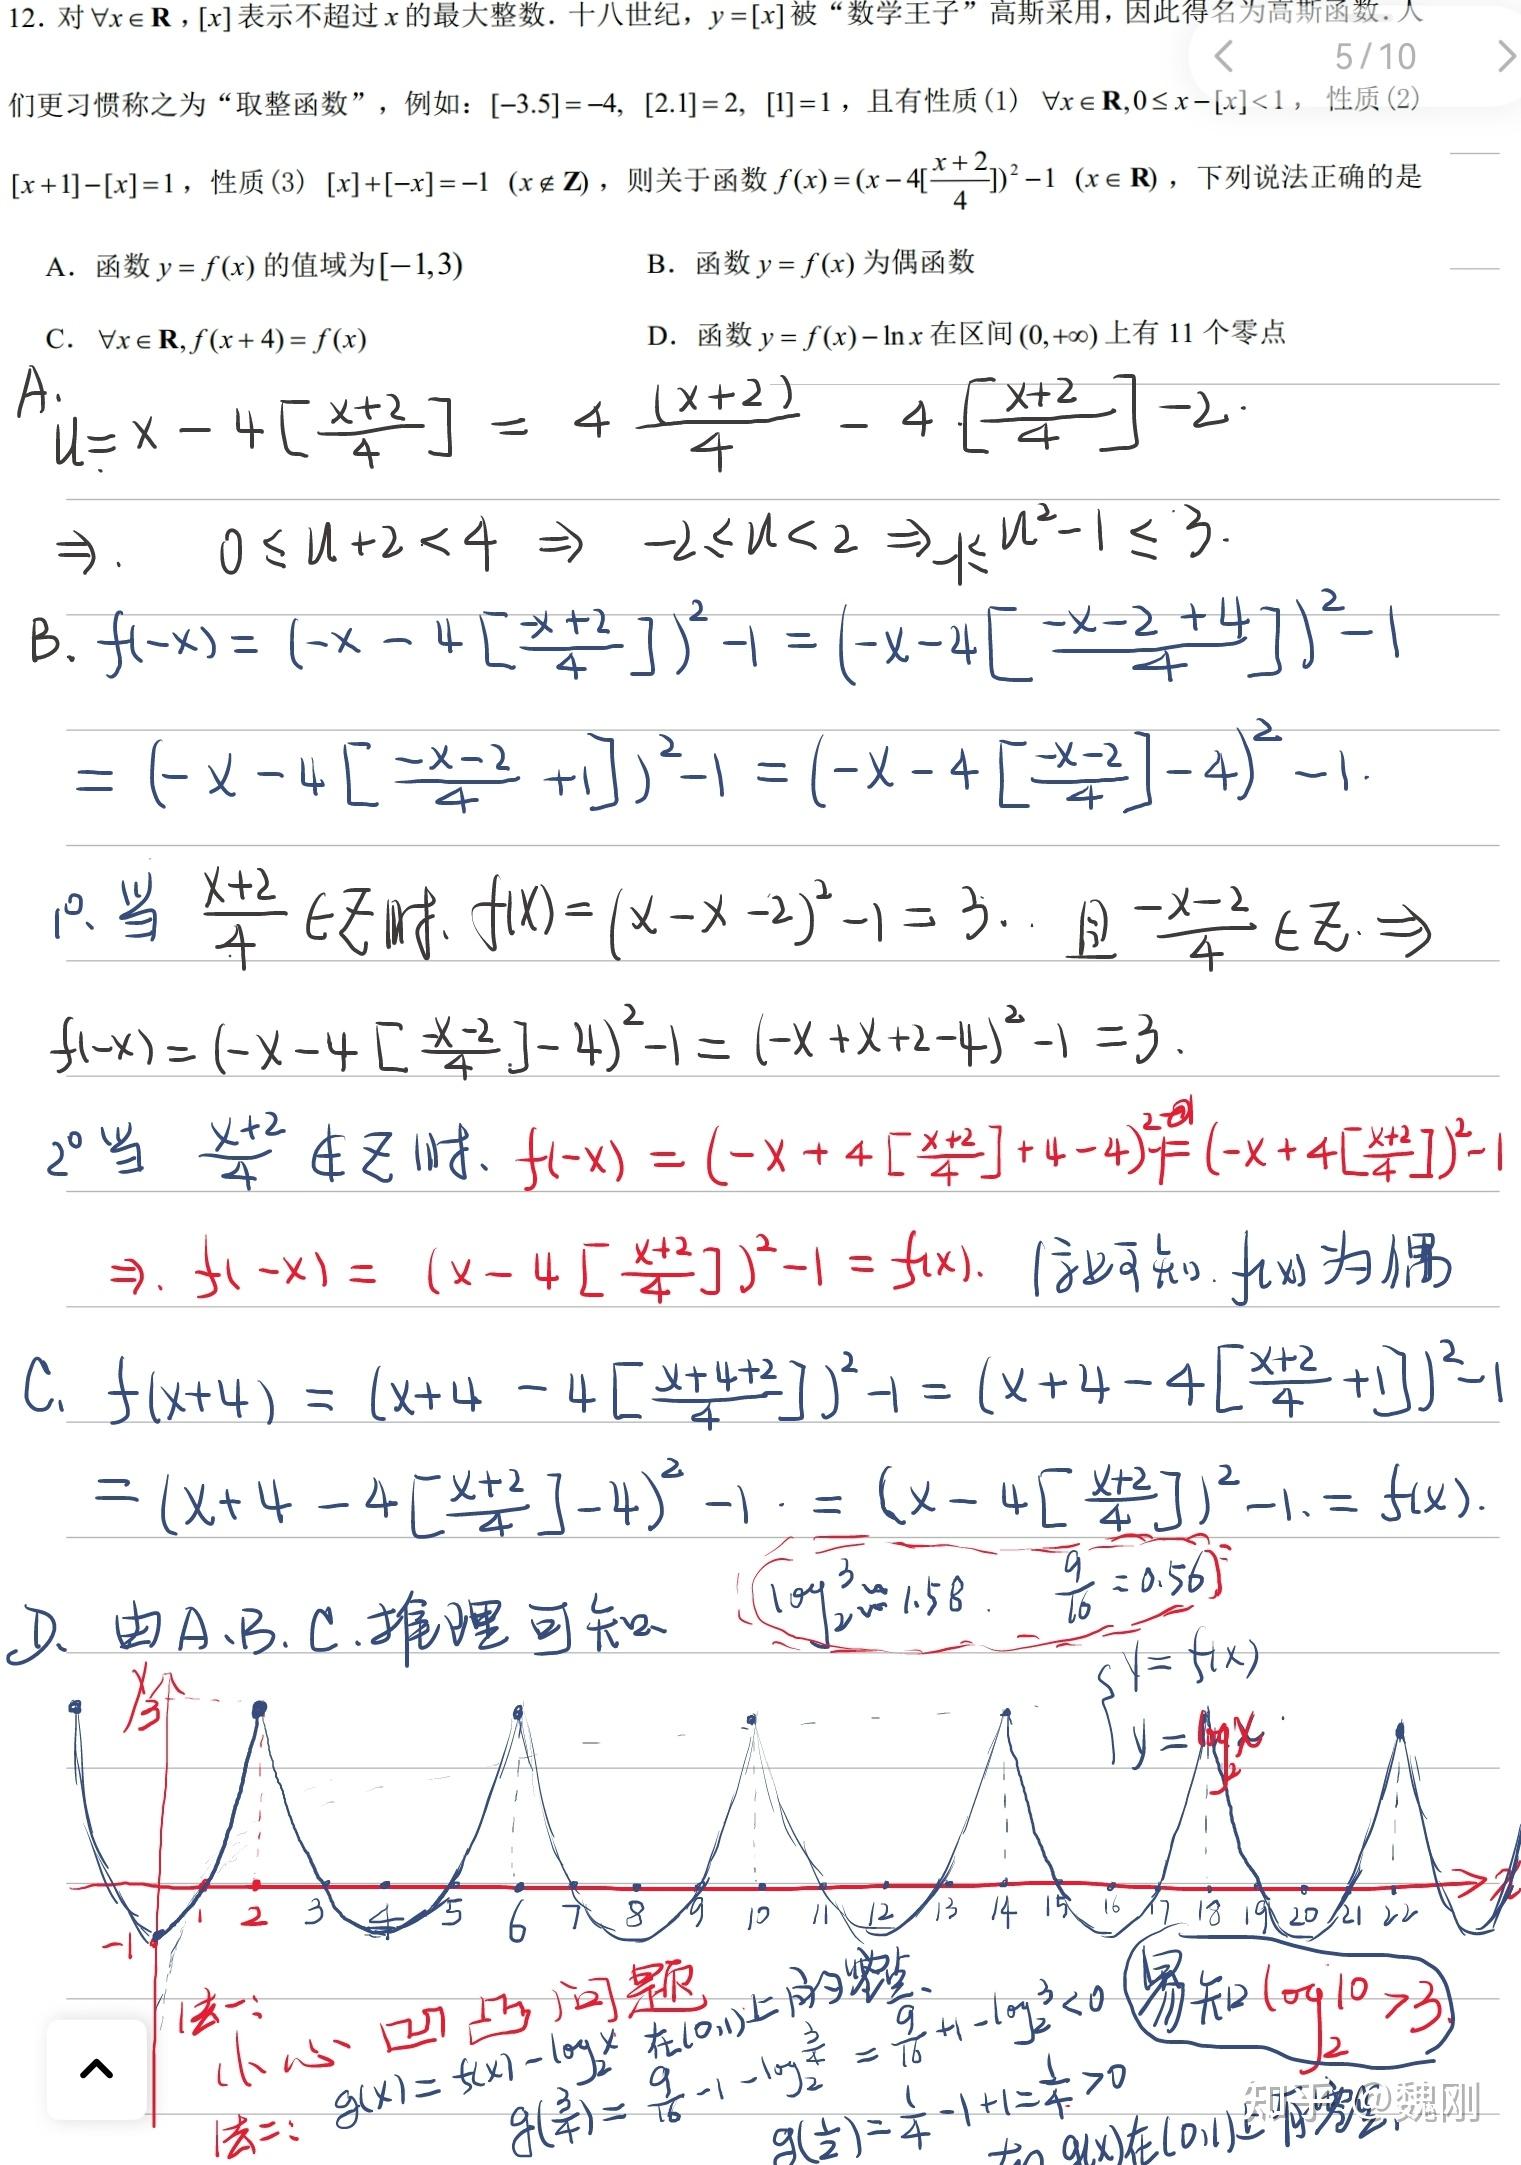 12. 对∀x∈R，[x]表示不超过x的最大整数．十八世纪，y=[x]被“数学王子”高斯采用，因此得名为高斯函数．人
5/10
们更习惯称之为“取整函数”，例如：[−3.5]=−4, [2.1]=2, [1]=1，且有性质(1) ∀x∈R,0≤x−[x]<1，性质(2)
[x+1]−[x]=1，性质(3) [x]+[−x]=−1 (x∉Z)，则关于函数f(x)=(x−4[(x+2)/4])²−1 (x∈R)，下列说法正确的是
A．函数y=f(x)的值域为[−1,3) B．函数y=f(x)为偶函数
C．∀x∈R,f(x+4)=f(x) D．函数y=f(x)−ln x在区间(0,+∞)上有11个零点
A. u=x−4[(x+2)/4] = 4(x+2)/4 − 4[(x+2)/4]−2.
⇒. 0≤u+2<4 ⇒ −2≤u<2 ⇒ −1≤u²−1≤3.
B. f(−x)=(−x−4[(−x+2)/4])²−1=(−x−4[(−x−2+4)/4])²−1
=(−x−4[(−x−2)/4+1])²−1=(−x−4[(−x−2)/4]−4)²−1.
1°、当 (x+2)/4∈Z时、f(x)=(x−x−2)²−1=3.. 且(−x−2)/4∈Z.⇒
f(−x)=(−x−4[(−x−2)/4]−4)²−1=(−x+x+2−4)²−1=3.
2°当 (x+2)/4∉Z时、f(−x)=(−x+4[(x+2)/4]+4−4)²−1=(−x+4[(x+2)/4])²−1
⇒. f(−x)=(x−4[(x+2)/4])²−1=f(x). 综上可知.f(x)为偶
C. f(x+4)=(x+4−4[(x+4+2)/4])²−1=(x+4−4[(x+2)/4+1])²−1
=(x+4−4[(x+2)/4]−4)²−1.=(x−4[(x+2)/4])²−1.=f(x).
log₂3≈1.58. 9/16=0.56
D. 由A.B.C.推理可知、
y=f(x)
y=log₂x
y
3
x
1 2 3 4 5 6 7 8 9 10 11 12 13 14 15 16 17 18 19 20 21 22
−1
法一:
小心凹凸问题
易知log₂10>3.
法二:
g(x)=f(x)−log₂x 在(0,1)上的零点、
g(3/4)=9/16−1−log₂3/4=9/16+1−log₂3<0
g(1/2)=1/4−1+1=1/4>0
g(x)在(0,1)上有零点.
知乎 @魏刚